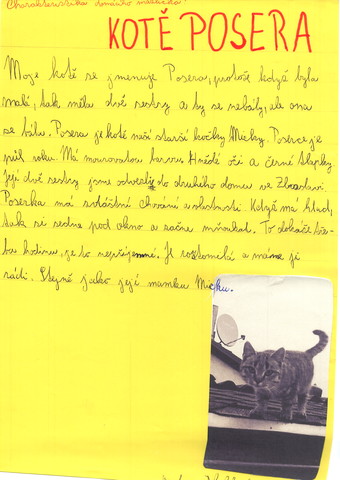 Charakteristika domácího mazlíčka
KOTĚ POSERA
Moje kotě se jmenuje Posera, protože když byla
malé, tak měla dvě sestry a ty se nebály, ale ona
se bála. Posera je kotě naší starší kočky Micky. Poserce je
půl roku. Má mourovatou barvu Hnědé oči a černé tlapky
Její dvě sestry jsme odvezli do druhého domu ve
Poserka má zvláštní chování a vlastnosti. Když má hlad,
tak si sedne pod okno a začne mňoukat. To dokáže tře-
ba hodinu, je to nepříjemné. Je roztomilá a máme ji
rádi. Stejně jako její mamku Micku.